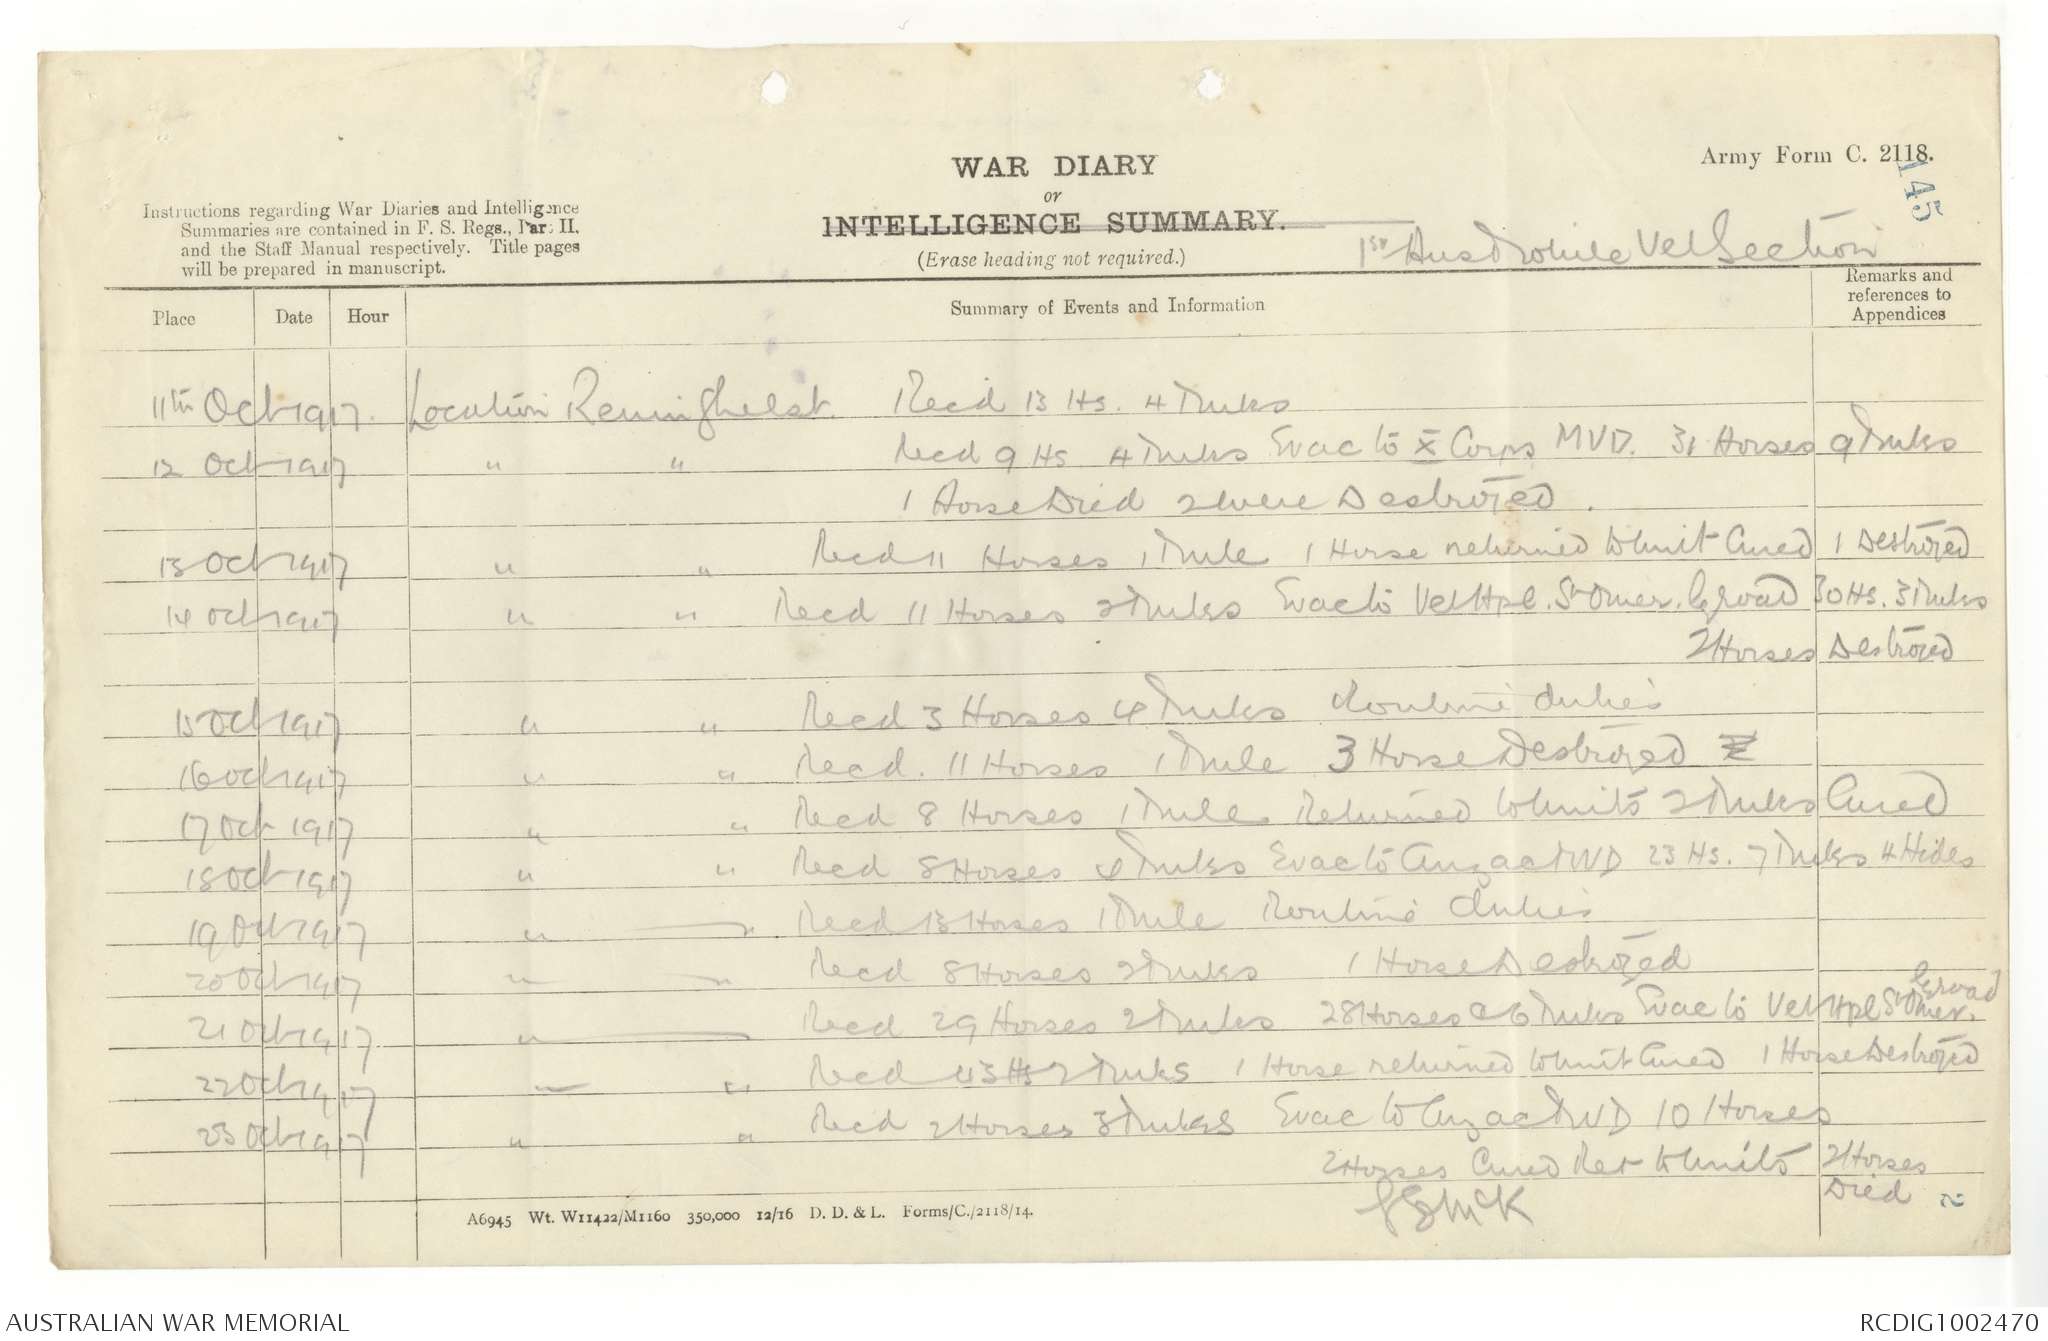 WAR DIARY
or
INTELLIGENCE SUMMARY.
(Erase heading not required.)
Army Form C. 2118.
145
Instructions regarding War Diaries and Intelligence
Summaries are contained in F. S. Regs., Part II.
and the Staff Manual respectively. Title pages
will be prepared in manuscript.
1st Aust Mobile Vet Section
Place Date Hour Summary of Events and Information Remarks and references to Appendices
11th Oct 1917. Location Reninghelst. Recd 13 Hs. 4 Mules
12 Oct 1917 " " Recd 9 Hs 4 Mules Evac to X Corps MVD. 31 Horses 9 Mules
1 Horse Died 2 were Destroyed.
13 Oct 1917 " " Recd 11 Horses 1 Mule 1 Horse returned to Unit Cured 1 Destroyed
14 Oct 1917 " " Recd 11 Horses 2 Mules Evac to Vet Hpl. St Omer. By road 30 Hs. 3 Mules
2 Horses Destroyed
15 Oct 1917 " " Recd 3 Horses 4 Mules Routine duties
16 Oct 1917 " " Recd. 11 Horses 1 Mule 3 Horse Destroyed
17 Oct 1917 " " Recd 8 Horses 1 Mule Returned to Units 2 Mules Cured
18 Oct 1917 " " Recd 8 Horses 4 Mules Evac to Anzac MVD 23 Hs. 7 Mules 4 Hides
19 Oct 1917 " " Recd 13 Horses 1 Mule Routine duties
20 Oct 1917 " " Recd 8 Horses 2 Mules 1 Horse Destroyed
21 Oct 1917 " Recd 29 Horses 2 Mules 28 Horses & 6 Mules Evac to Vet Hpl St Omer. By road
22 Oct 1917 " " Recd 43 Hs 2 Mules 1 Horse returned to Unit Cured 1 Horse Destroyed
23 Oct 1917 " " Recd 2 Horses 3 Mules Evac to Anzac MVD 10 Horses
2 Horses Cured Ret to Units 2 Horses
Died
A6945 Wt. W11422/M1160 350,000 12/16 D. D. & L. Forms/C./2118/14.
AUSTRALIAN WAR MEMORIAL
RCDIG1002470